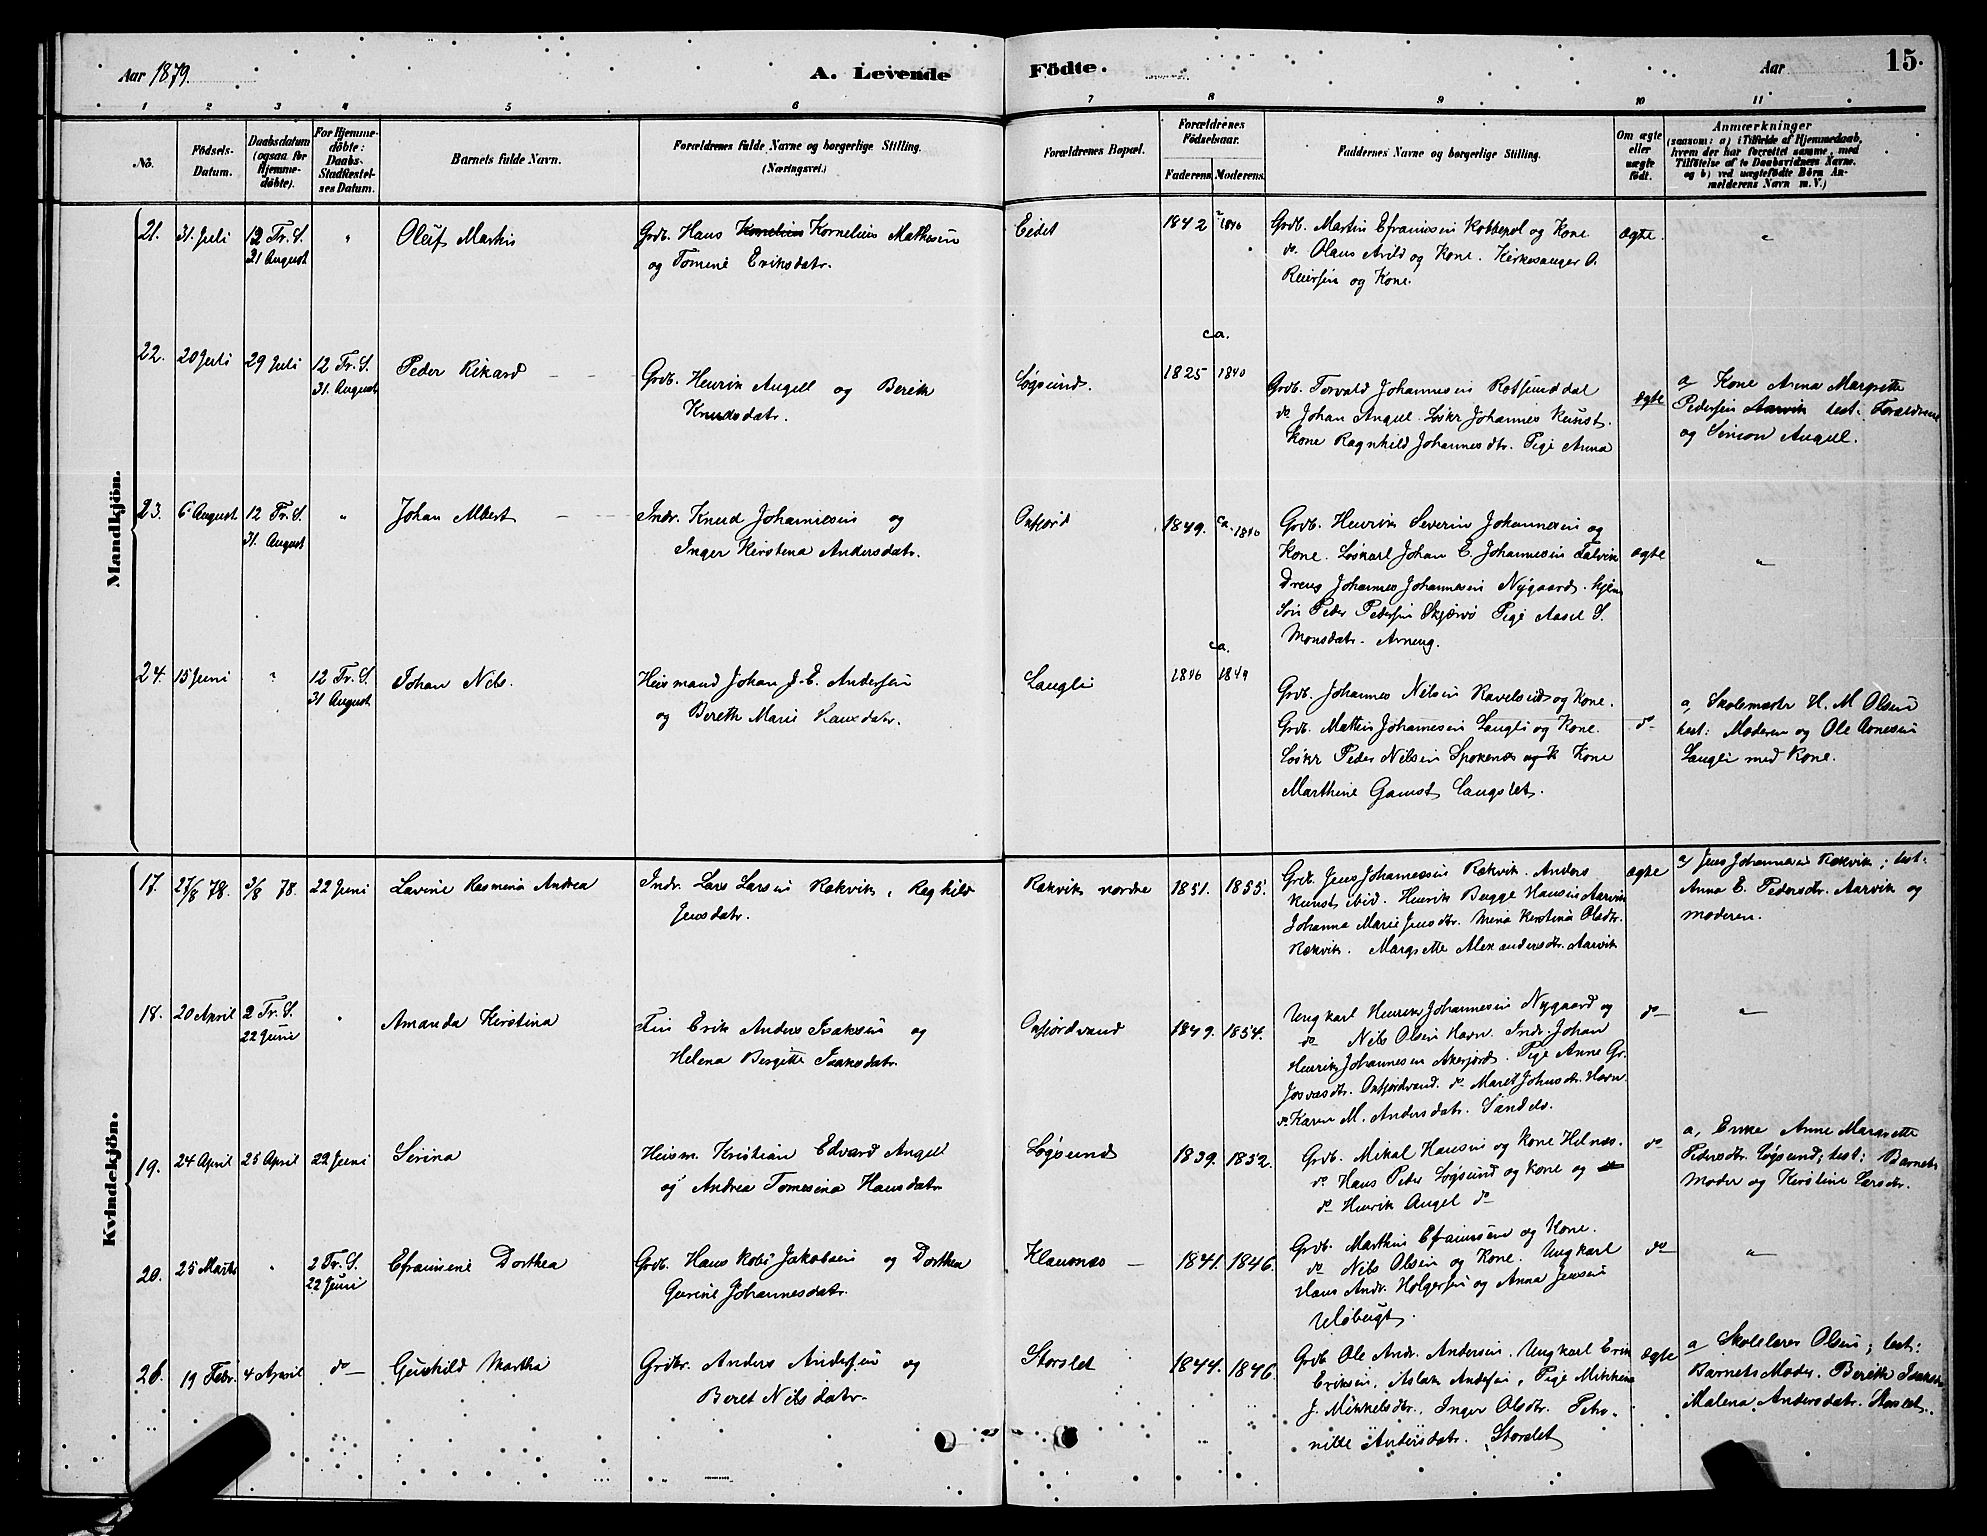 Aar 1879.
A. Levende Födte.
Aar
15.
1 2 3 4 5 6 7 8 9 10 11
No.
Födsels-Datum.
Daabsdatum (ogsaa for Hjemme-döbte).
For Hjemme-döbte: Daabs-Stadfæstel-ses Datum.
Barnets fulde Navn.
Forældrenes fulde Navne og borgerlige Stilling. (Næringsvei.)
Forældrenes Bopæl.
Forældrenes Födselsaar.
Faderens. Moderens.
Faddernes Navne og borgerlige Stilling.
Om ægte eller uægte födt.
Anmærkninger
(saasom: a) i Tilfælde af Hjemmedaab,
hvem der har forrettet samme, med
Tilföielse af to Daabsvidners Navne.
og b) ved uægtefödte Börn An-
melderens Navn m. V.)
Mandkjön.
21. 31. Juli 12 Tr. S. 31 August " Oleif Martin
Grdb. Hans Kornelius Kornelius Mathesen
og Tomine Eriksdatr.
Eidet 1842 1846
Grdb. Martin Efraimsen Kobbepol og Kone
do. Olaus Arild og Kone. Kirkesanger O.
Reiersen og Kone.
Ægte. "
22. 20 Juli 29 Juli 12 Tr. S. 31 August Peder Rikard
Grdb. Henrik Angell og Berith
Knudsdatr.
Løgsund. 1825 ca. 1840
Grdb. Torvald Johannesen Rotsunddal
do Johan Angell. Løskr Johannes Kunst.
Kone Ragnhild Johannesdtr. Pige Anna
Ægte
a, Kone Anna Margrette
Pedersen Aarvik test: Forældrene
og Simon Angell.
23. 6 August 12 Tr. S. 31. August " Johan Albert
Indr. Knud Johannesen og
Inger Kirstena Andersdatr.
Oxfjord 1849. ca. 1840
Grdb. Henrik Severin Johannesen og
Kone. Løskarl Johan E. Johannesen Talvik
Dreng Johannes Johannesen Nygaard.
Peder Pedersen Skjærvø Pige Aasel S.
Monsdatr.
Ægte "
24. 15 Juni " 12 Tr. S. 31 August Johan Nels.
Heismand Johan J. E. Andersen
og Bereth Marie Hansdatr.
Langli 1846 ca. 1849
Grdb. Johannes Nilsen Ravelseid og Kone.
Grdb. Mathis Johannesen Langli og Kone.
Løskr Peder Nilsen Spokenes og K Kone
Marthine Gamst Langslet.
do
a, Skolemestr H. M. Olsen
test: Moderen og Ole Arnesen
Langli med Kone.
Kvindekjön.
17. 27/8 78. 3/8 78. 22 Juni Lavine Rasmina Andrea
Indr. Lars Larsen Rakvik, Raghild
Jensdatr.
Rakvik nordre 1851. 1855.
Grdb. Jens Johannesen Rakvik. Anders
Kunst ibid. Henrik Bugge Hansen Aarvik
Johanna Marie Jensdtr. Mena Kerstina Olsdtr.
Rakvik. Margrette Alexandersdtr. Aarvik
Ægte
a/ Jens Johannesen Rakvik; test:
Anna E. Pedersdtr. Aarvik og
moderen.
18. 20 April 2 Tr. S. 22 Juni " Amanda Kirstina
Fin Erik Anders Isaksen og
Helena Birgitte Isaksdatr.
Oxfjordvand 1849. 1854.
Ungkarl Henrik Johannesen Nygaard og
do Nils Olsen Havn. Indr. Johan
Henrik Johannesen. Pige Anne Gr.
Josvasdtr. Oxfjordvand. do Maret Johnsdtr. Havn
do Karen M. Andersdatr.
do "
19. 24 April 25 April 22 Juni Serina
Heism. Kristian Edvard Angell
og Andrea Tomesina Hansdatr.
Løgsund 1839. 1852.
Grdb. Mikal Hansen og Kone Helnæs.
do Hans Peder Løgsund og kone og
do Henrik Angel do
do
a, Enke Anne Margrette
Pedersdtr. Løgsund; test: Barnets
Moder og Kerstine Larsdtr.
20. 25 Marts " 2 Tr. S. 22 Juni Efraimine Dorthea
Grdb. Hans Kobi Jakobsen og Dorthea
Gurine Johannesdatr.
Klauvnæs 1841. 1846.
Grdb. Marthin Efraimsen og Kone.
do Nils Olsen og Kone. Ungkarl
Hans Andr. Holgersen og Anna Jensen
Uløbugt.
do "
21. 19 Febr. 4 April do Gunhild Martha
Grdbr. Anders Andersen og
Beret Nilsdatr.
Storslet 1844. 1846.
Grdb Ole Andr. Andersen. Ungkarl Erik
Eriksen, Aslak Andersen, Pige
J. Mikkelsdtr, Inger Olsdtr. Petro-
nille Andersdatr. Storslet
Ægte
a, Skolelærer Olsen; test:
Barnets Moder. Berith
Malena Andersdatr. Storslet.